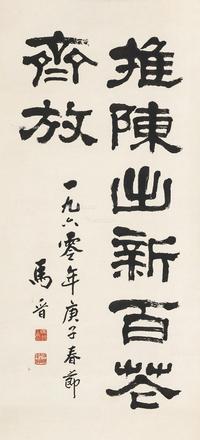 推陳出新百花
齊放
一九六零年庚子春節
馬晉